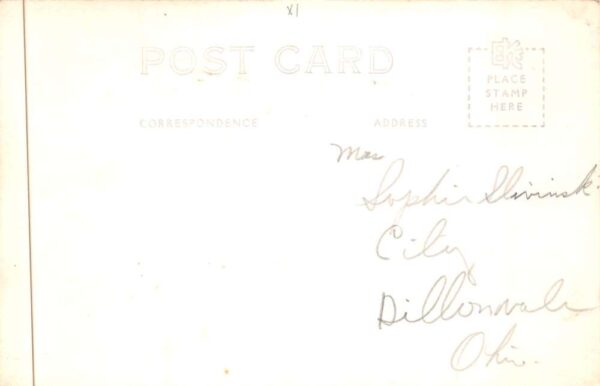 x1
POST CARD
EKC
PLACE
STAMP
HERE
CORRESPONDENCE
ADDRESS
Mrs
Sophie Slivinski
City
Dillonvale
Ohio.